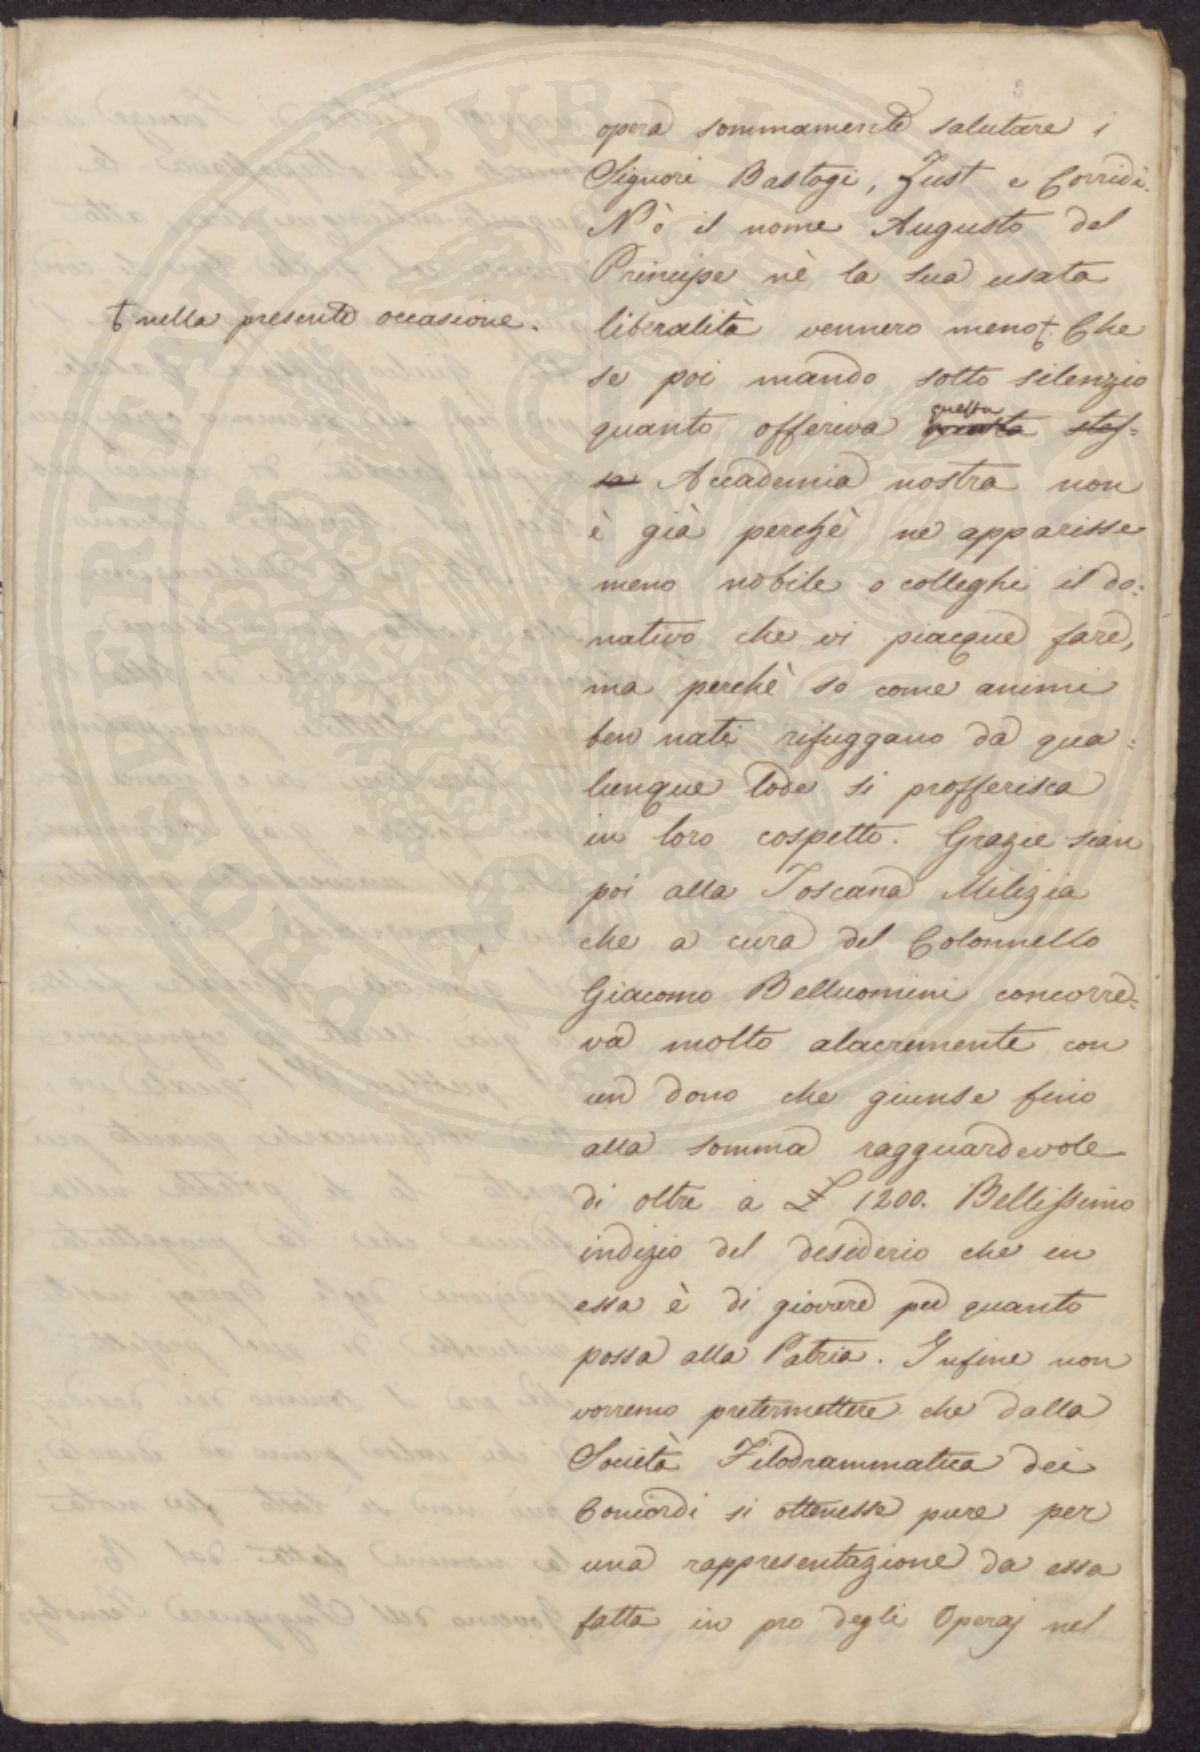 opera sommamente salutare i
Signori Bastogi, Just e Corridi.
Nè il nome Augusto del
Principe nè la sua usata
ŧ nella presente occasione.
liberalità vennero meno ŧ. Che
se poi mando sotto silenzio
questa
quanto offeriva questa stes=
sa Accademia nostra non
è già perchè ne apparisse
meno nobile o colleghi il do=
nativo che vi piacque fare,
ma perchè so come animi
ben nati rifuggano da qua=
lunque lode si profferisca
in loro cospetto. Grazie sian
poi alla Toscana Milizia
che a cura del Colonnello
Giacomo Belluomini concorre=
va molto alacremente con
un dono che giunse fino
alla somma ragguardevole
di oltre a £ 1200. Bellissimo
indizio del desiderio che in
essa è di giovare per quanto
possa alla Patria. Infine non
vorremo pretermettere che dalla
Società Filodrammatica dei
Concordi si ottenesse pure per
una rappresentazione da essa
fatta in pro degli Operaj nel